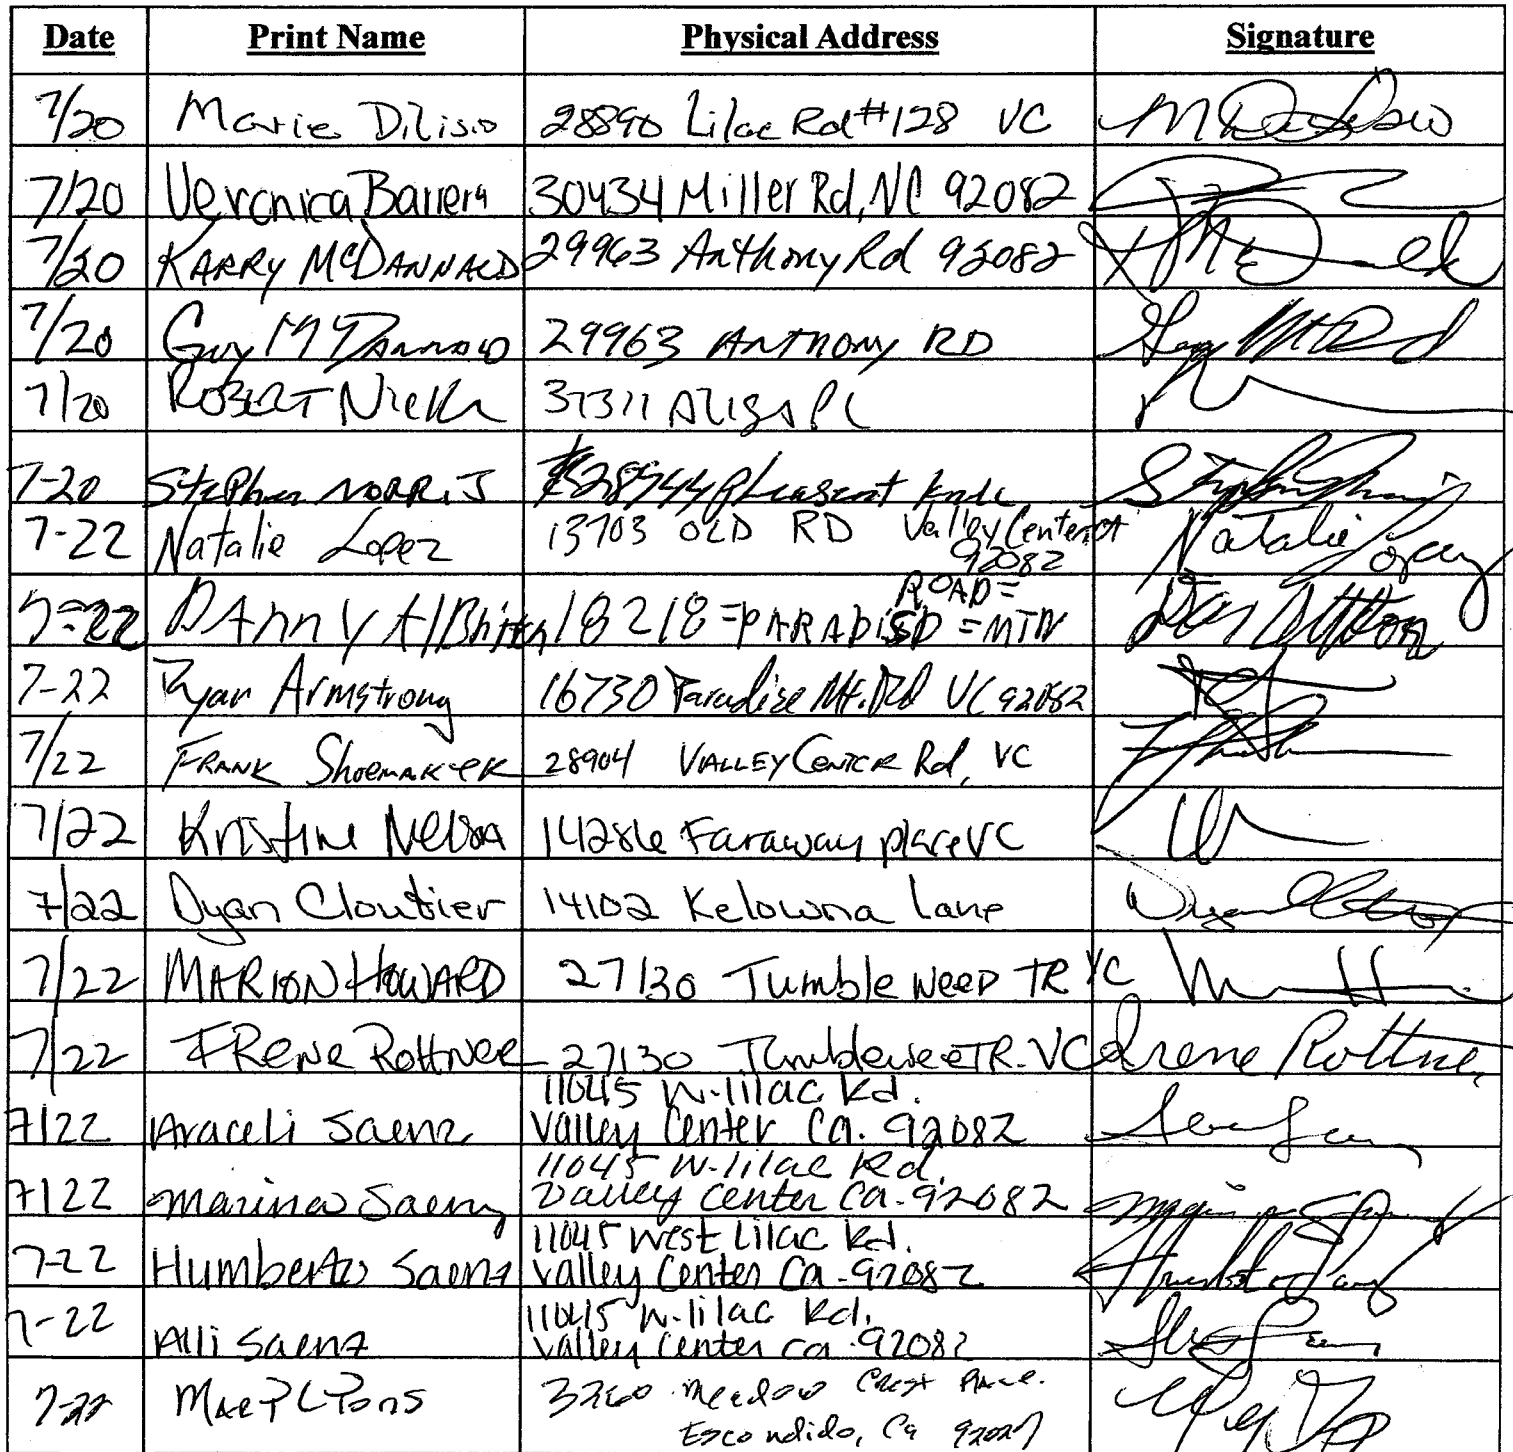 Date Print Name Physical Address Signature
7/20 Marie DiLisio 28890 Lilac Rd #128 VC
7/20 Veronica Barrera 30434 Miller Rd, VC 92082
7/20 KARRY McDANNALD 29963 Anthony Rd 92082
7/20 Guy McDannald 29963 ANTHONY RD
7/20 ROBERT 37311
7-20 Stephen NORRIS 28944 Pleasant
7-22 Natalie Lopez 13703 OLD RD Valley Center 92082 Natalie Lopez
ROAD=
DAnny Al 18218 = PARADISD = MTN
7-22 Ryan Armstrong 16730 Paradise Mt. Rd VC 92082
7/22 FRANK Shoemaker 28904 VALLEY CENTER Rd, VC
7/22 Kristine Nelson 14286 Faraway place VC
7/22 Dyan Cloutier 14102 Kelowna Lane
7/22 MARION HOWARD 27130 Tumble WeeD TR VC
7/22 IRene Rottner 27130 TumbleweeTR. VC Irene Rottner
11045 W. lilac Rd.
7/22 Araceli Saenz Valley Center Ca. 92082
11045 W. lilac Rd.
7/22 Marina Saenz Valley Center Ca. 92082
11045 West Lilac Rd.
7-22 Humberto Saenz Valley Center Ca. 92082
11045 W. lilac Rd.
7-22 Alli Saenz Valley Center Ca. 92082
7-22 3260 Meadow Crest Place.
Escondido, Ca 92027